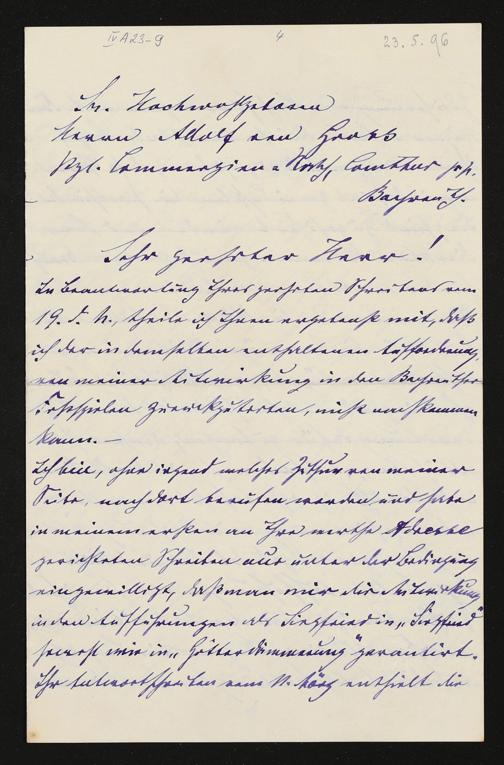 IV A 23-9
4
23. 5. 96
Sr. Hochwohlgeboren
Herrn Adolf von Groß
Kgl. Commerzien = Rath, Comthur pp.
Bayreuth.
Sehr geehrter Herr!
In Beantwortung Ihres geehrten Schreibens vom
19. d. M., theile ich Ihnen ergebenst mit, daß
ich der in demselben enthaltenen Aufforderung,
von meiner Mitwirkung in den Bayreuther
Festspielen zurückzutreten, nicht nachkommen
kann. —
Ich bin, ohne irgend welches Zuthun von meiner
Seite, nach dort berufen worden und habe
in meinem ersten an Ihre werthe Adresse
gerichteten Schreiben nur unter der Bedingung
eingewilligt, daß man mir die Mitwirkung
in den Aufführungen als Siegfried in „Siegfried"
sowohl wie in „Götterdämmerung" garantirt.
Ihr Antwortschreiben vom März enthielt die